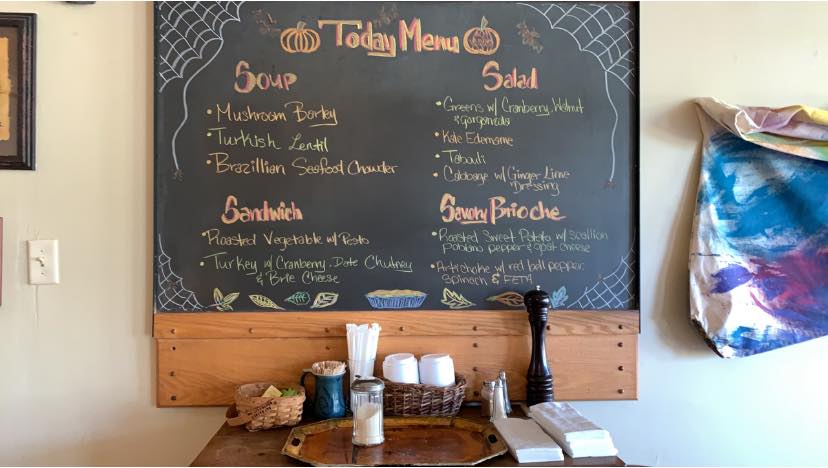 Today Menu
Soup
• Mushroom Barley
• Turkish Lentil
• Brazillian Seafood Chowder
Salad
• Greens w/ Cranberry, Walnut
& gorgonzola
• Kale Edemame
• Tabouli
• Cabbage w/ Ginger-Lime
Dressing
Sandwich
• Roasted Vegetable w/ Pesto
• Turkey w/ Cranberry-Date Chutney
& Brie Cheese
Savory Brioche
• Roasted Sweet Potato w/ scallion
Poblano pepper & goat cheese
• Artichoke w/ red bell pepper
Spinach & FETA